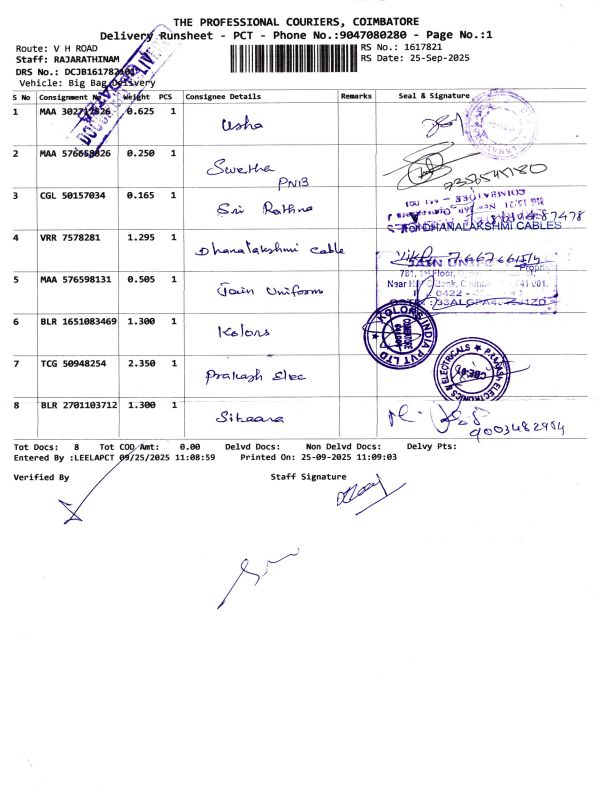 THE PROFESSIONAL COURIERS, COIMBATORE
Delivery Runsheet - PCT - Phone No.:9047080280 - Page No.:1
Route: V H ROAD
RS No.: 1617821
Staff: RAJARATHINAM
RS Date: 25-Sep-2025
DRS No.: DCJB161782
Vehicle: Big Bag Delivery
S No Consignment No Weight PCS Consignee Details Remarks Seal & Signature
1 MAA 0.625 1 Usha
2 MAA 576658826 0.250 1 Swetha PNB
3 CGL 50157034 0.165 1 Sri Rathna
4 VRR 7578281 1.295 1 Dhanalakshmi Cable
DHANALAKSHMI CABLES
5 MAA 576598131 0.505 1 Jain Uniform
JAIN
781, 1st Floor,
Near Bank,
0422
6 BLR 1651083469 1.300 1 Kolors
KOLORS INDIA PVT LTD
7 TCG 50948254 2.350 1 Prakash Elec
PRAKASH ELECTRONICS & ELECTRICALS
8 BLR 2701103712 1.300 1 Sitaara
9003482954
Tot Docs: 8 Tot COD Amt: 0.00 Delvd Docs: Non Delvd Docs: Delvy Pts:
Entered By :LEELAPCT 09/25/2025 11:08:59 Printed On: 25-09-2025 11:09:03
Verified By Staff Signature